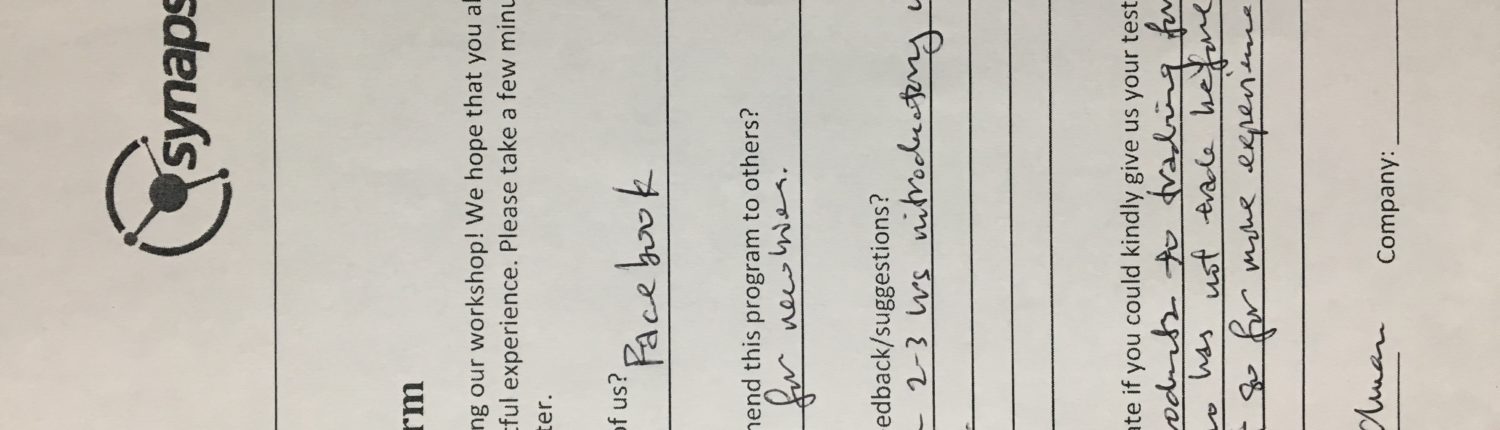 synaps
rm
ng our workshop! We hope that you al
ful experience. Please take a few minu
ter.
of us? Facebook
mend this program to others?
for newbies.
edback/suggestions?
- 2-3 hrs introductory
ate if you could kindly give us your test
to trading for
has not trade before
go for more experience
Company: